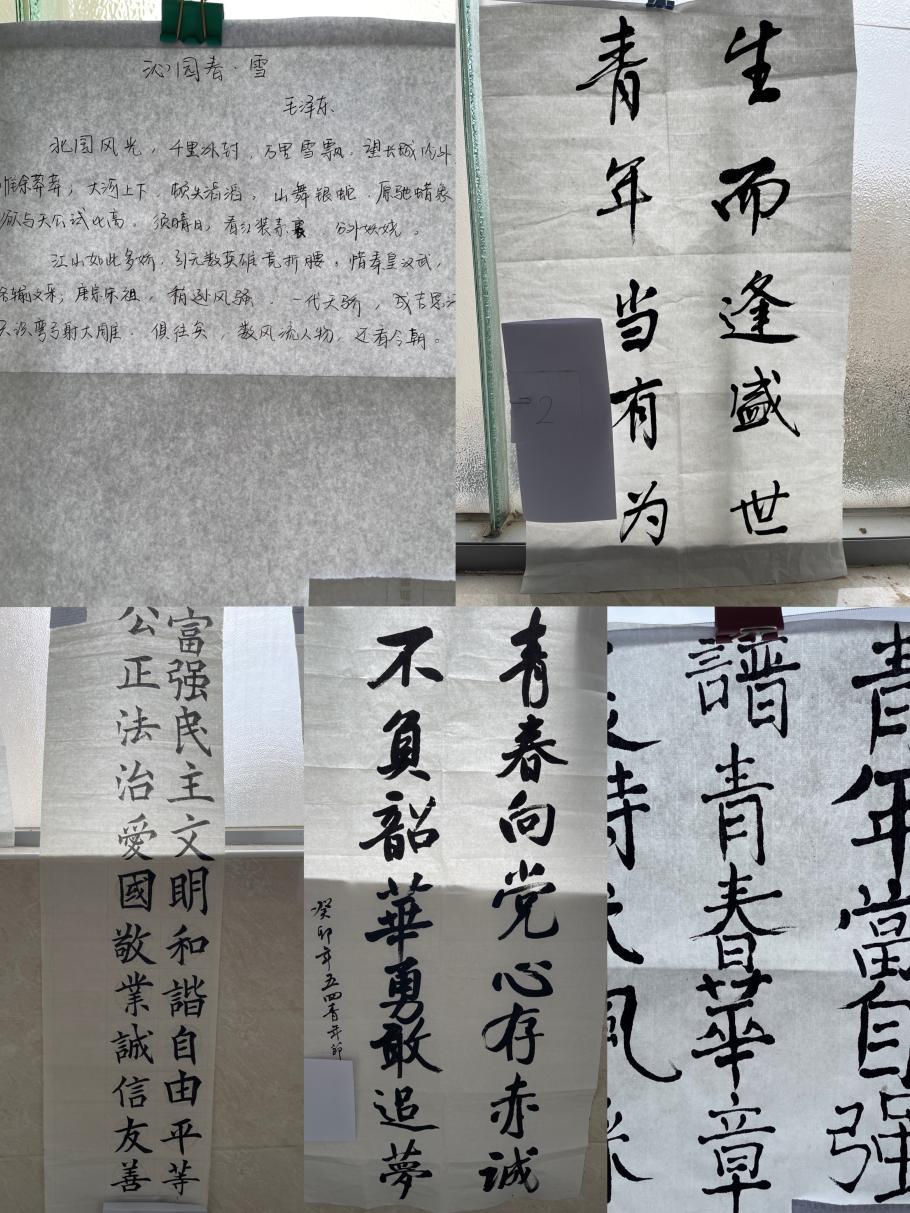 沁园春·雪
毛泽东
北国风光，千里冰封，万里雪飘。望长城内外
惟余莽莽；大河上下，顿失滔滔。山舞银蛇，原驰蜡象
欲与天公试比高。须晴日，看红装素裹 分外妖娆。
江山如此多娇，引无数英雄竞折腰。惜秦皇汉武，
输文采；唐宗宋祖，稍逊风骚。一代天骄，成吉思
只识弯弓射大雕。俱往矣，数风流人物，还看今朝。
生而逢盛世
青年当有为
2
富强民主文明和諧自由平等
公正法治愛國敬業誠信友善
青春向党心存赤诚
不負韶華勇敢追夢
癸卯年五四青年節
青年當自强
譜青春華章
風